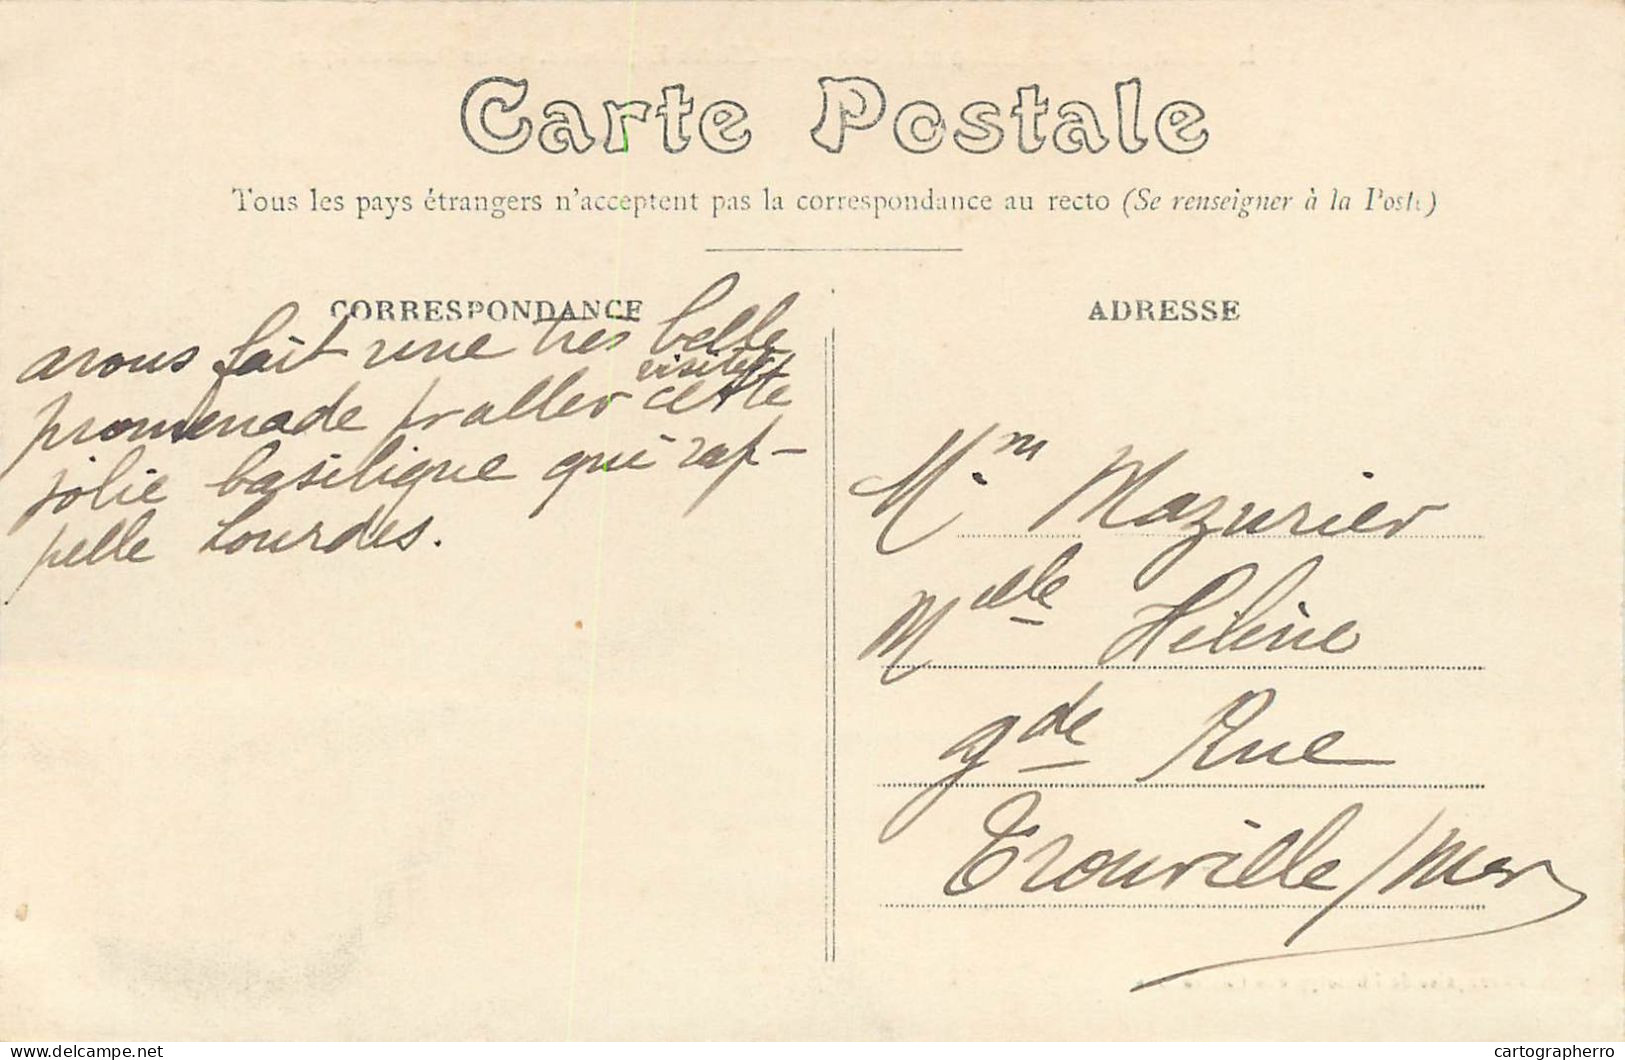 Carte Postale
Tous les pays étrangers n'acceptent pas la correspondance au recto (Se renseigner à la Poste)
CORRESPONDANCE
avons fait une très belle
promenade pr aller visiter cette
jolie basilique qui rap-
pelle Lourdes.
ADRESSE
Mm Mazurier
Melle Hélène
gde Rue
Trouville/Mer
delcampe.net
cartographerro